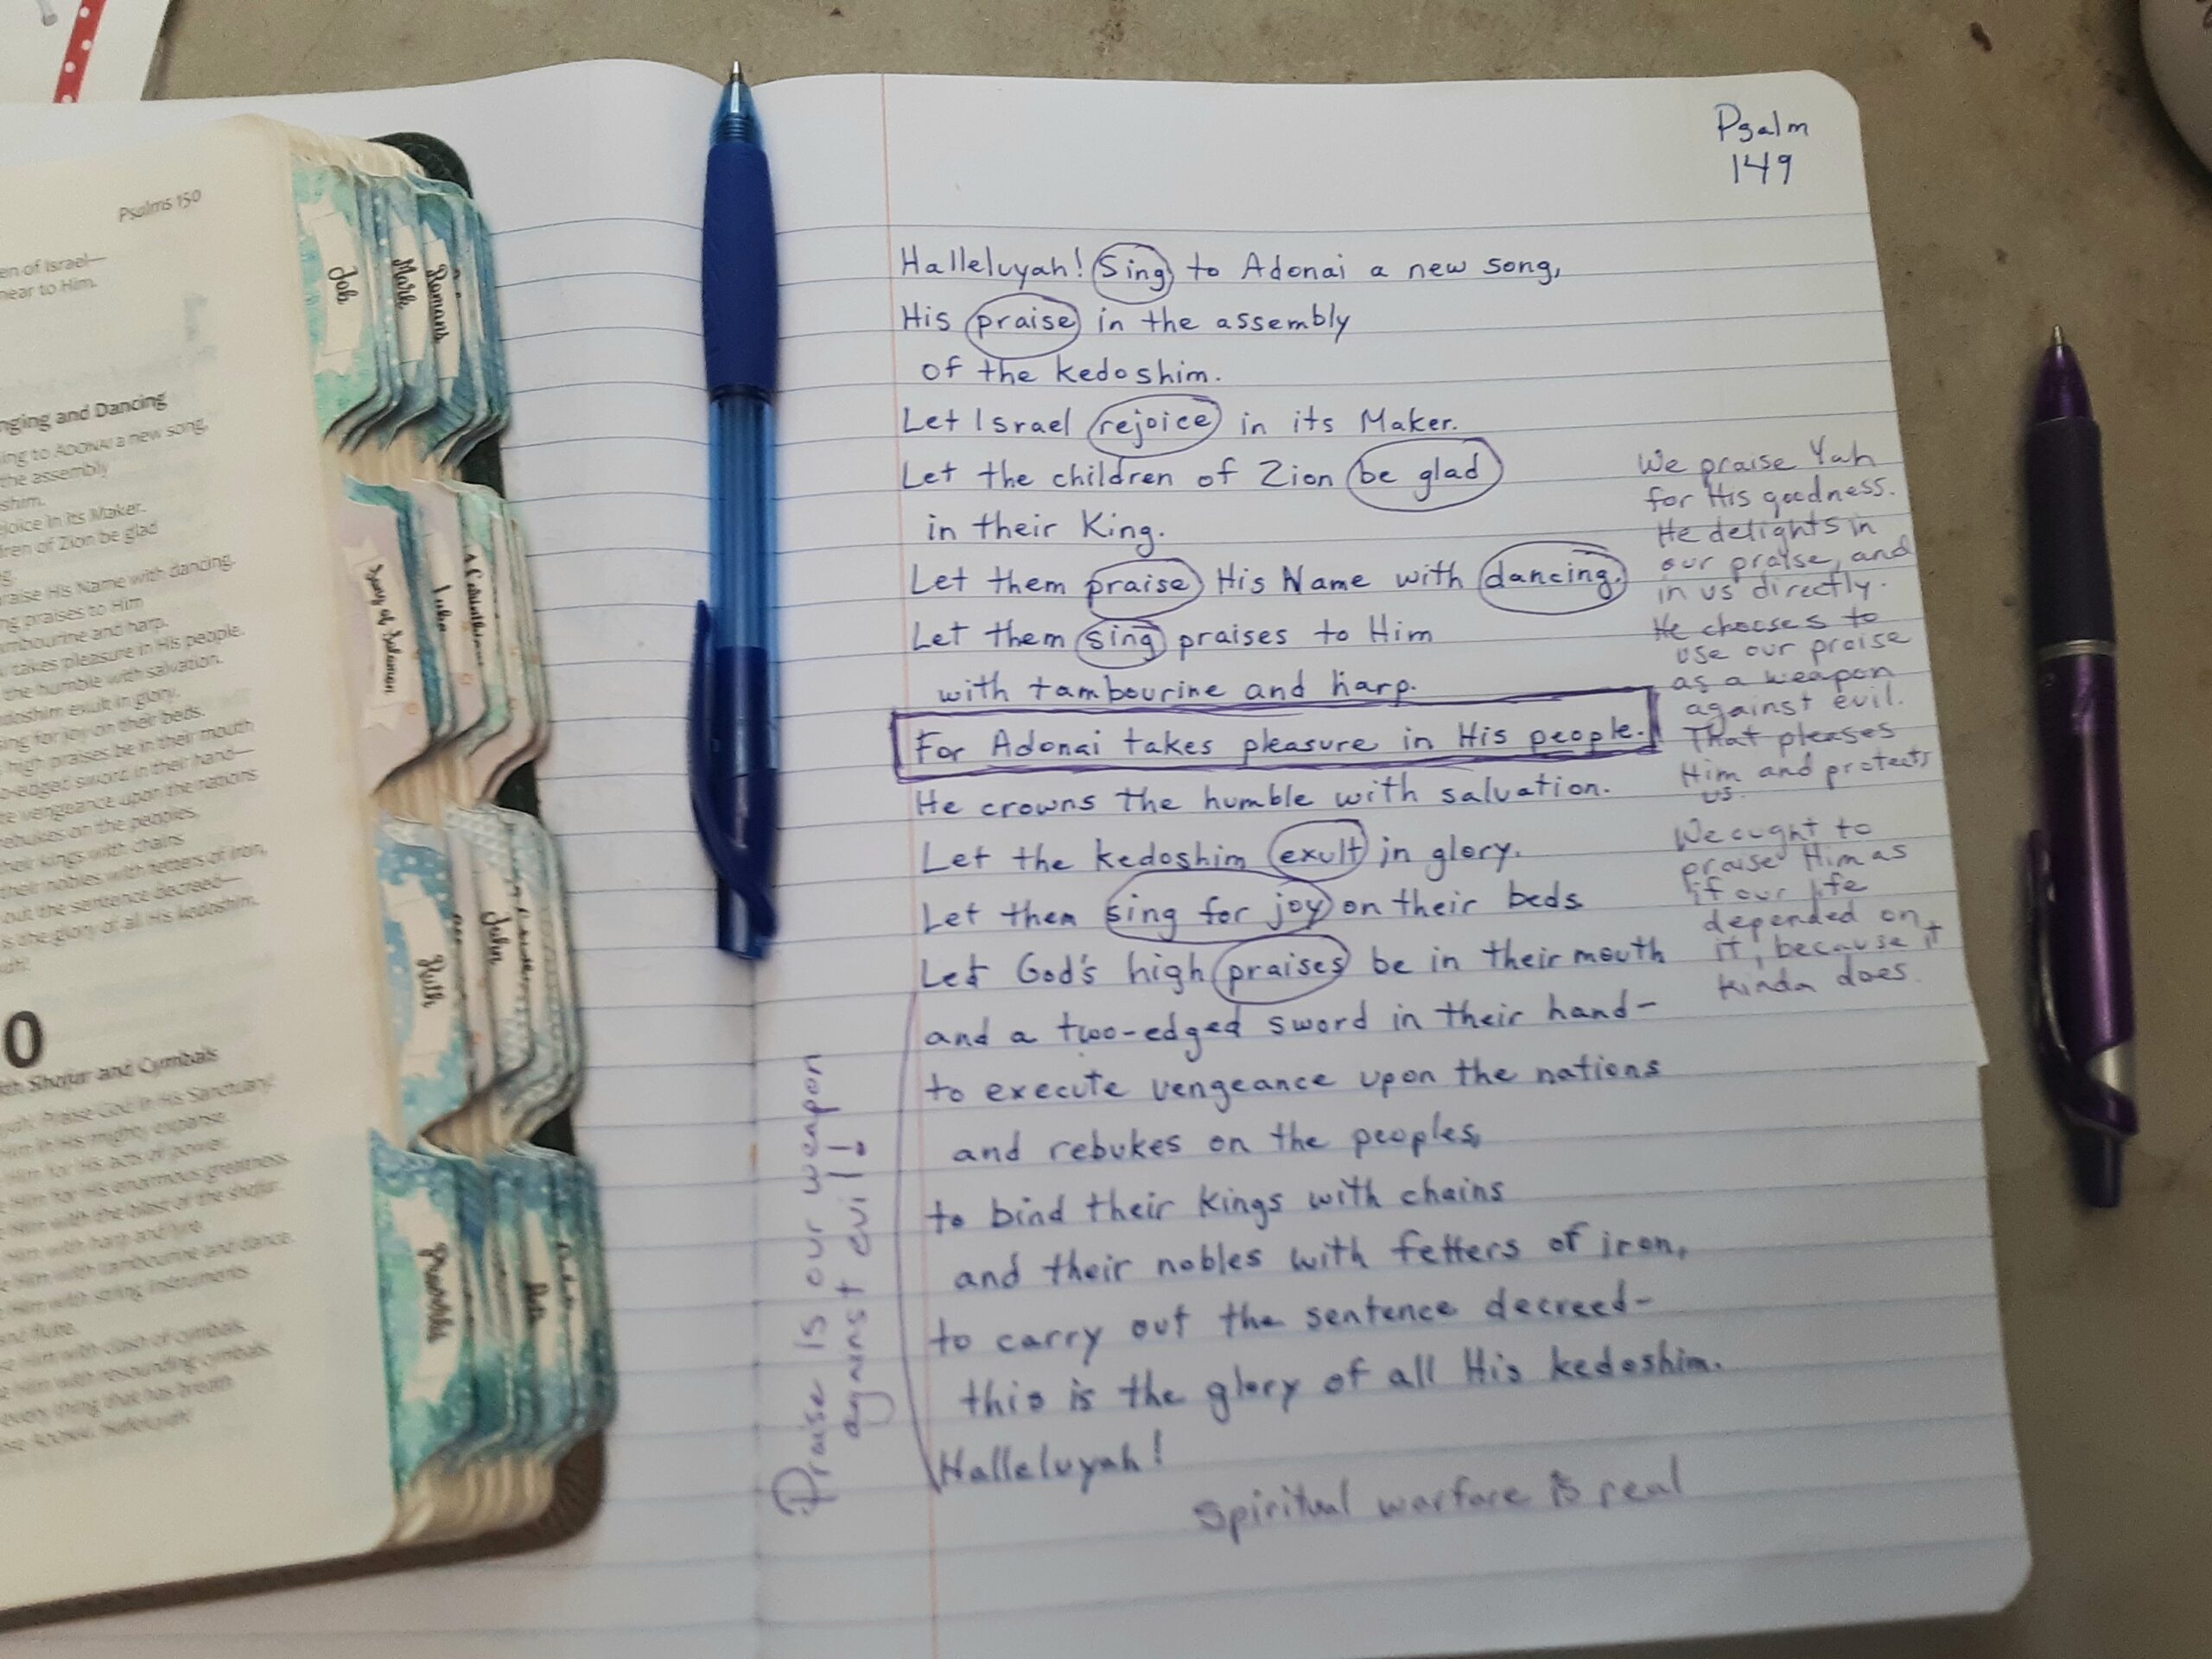 Psalms 150
en of Israel—
near to Him.
nging and Dancing
ing to ADONAI a new song,
the assembly
shim.
joice in its Maker.
dren of Zion be glad
g.
raise His Name with dancing.
ng praises to Him
mbourine and harp.
takes pleasure in His people.
the humble with salvation.
doshim exult in glory.
sing for joy on their beds.
high praises be in their mouth
o-edged sword in their hand—
te vengeance upon the nations
rebukes on the peoples,
heir kings with chains
their nobles with fetters of iron,
out the sentence decreed—
is the glory of all His kedoshim.
uah!
0
ith Shofar and Cymbals
yah! Praise God in His Sanctuary!
Him in His mighty expanse.
Him for his acts of power.
e Him for His enormous greatness.
e Him with the blast of the shofar.
Him with harp and lyre.
e Him with tambourine and dance.
Him with string instruments
and flute.
se Him with clash of cymbals.
e Him with resounding cymbals.
every thing that has breath
ise ADONAI. Halleluyah!
Job
Mark
Romans
Song of Solomon
Luke
Ruth
John
Proverbs
Psalm
149
Halleluyah! Sing to Adonai a new song,
His praise in the assembly
of the kedoshim.
Let Israel rejoice in its Maker.
Let the children of Zion be glad
in their King.
Let them praise His Name with dancing.
Let them sing praises to Him
with tambourine and harp.
For Adonai takes pleasure in His people.
He crowns the humble with salvation.
Let the kedoshim exult in glory.
Let them sing for joy on their beds.
Let God's high praises be in their mouth
and a two-edged sword in their hand-
to execute vengeance upon the nations
and rebukes on the peoples,
to bind their kings with chains
and their nobles with fetters of iron,
to carry out the sentence decreed-
this is the glory of all His kedoshim.
Halleluyah!
We praise Yah
for His goodness.
He delights in
our praise, and
in us directly.
He chooses to
use our praise
as a weapon
against evil.
That pleases
Him and protects
us.
We ought to
praise Him as
if our life
depended on
it, because it
kinda does.
Praise is our weapon
against evil!
Spiritual warfare is real